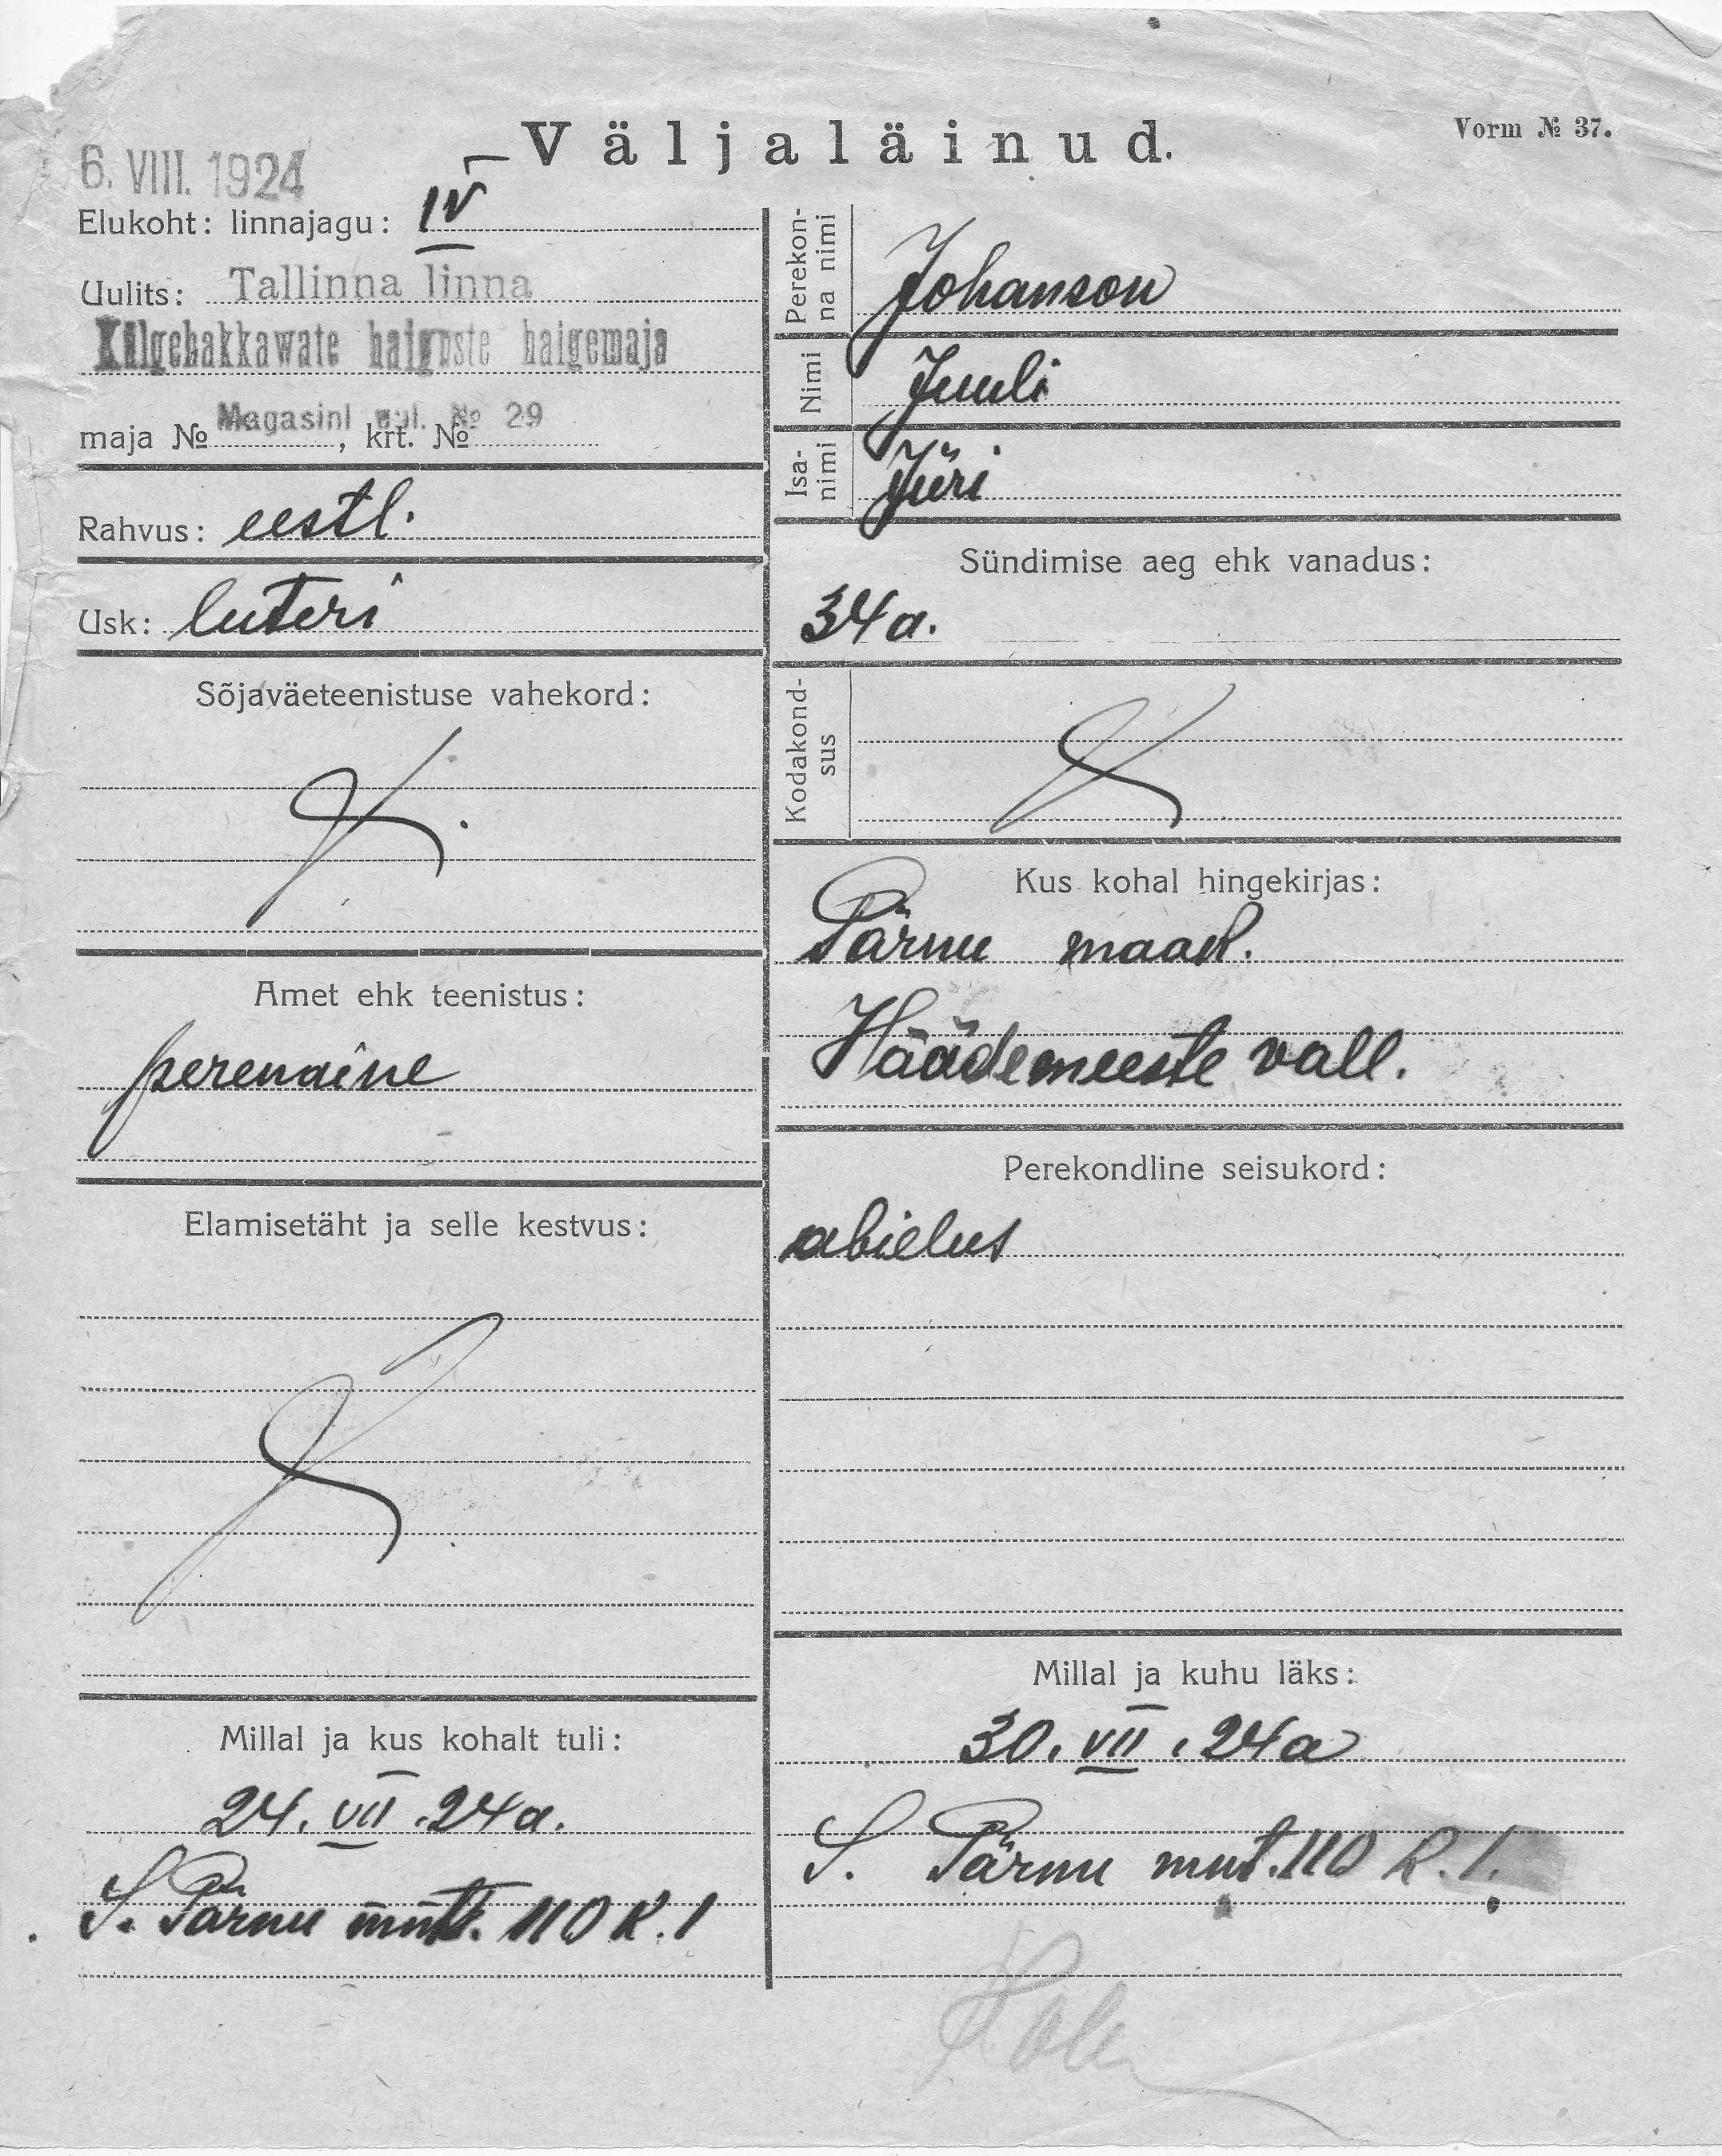 Väljaläinud.
Vorm № 37.
6. VIII. 1924
Elukoht: linnajagu: IV
Uulits: Tallinna linna
Külgehakkawate haiguste haigemaja
Magasini uul. № 29
maja № , krt. №
Rahvus: eestl.
Usk: luteri
Sõjaväeteenistuse vahekord:
Amet ehk teenistus:
perenaine
Elamisetäht ja selle kestvus:
Millal ja kus kohalt tuli:
24. VII. 24a.
S. Pärnu mnt. 110 K. 1
Perekon-
na nimi Johanson
Nimi Juuli
Isa-
nimi Jüri
Sündimise aeg ehk vanadus:
34 a.
Kodakond-
sus
Kus kohal hingekirjas:
Pärnu maak.
Häädemeeste vall.
Perekondline seisukord:
abielus
Millal ja kuhu läks:
30. VII. 24a
S. Pärnu mnt. 110 K. 1.